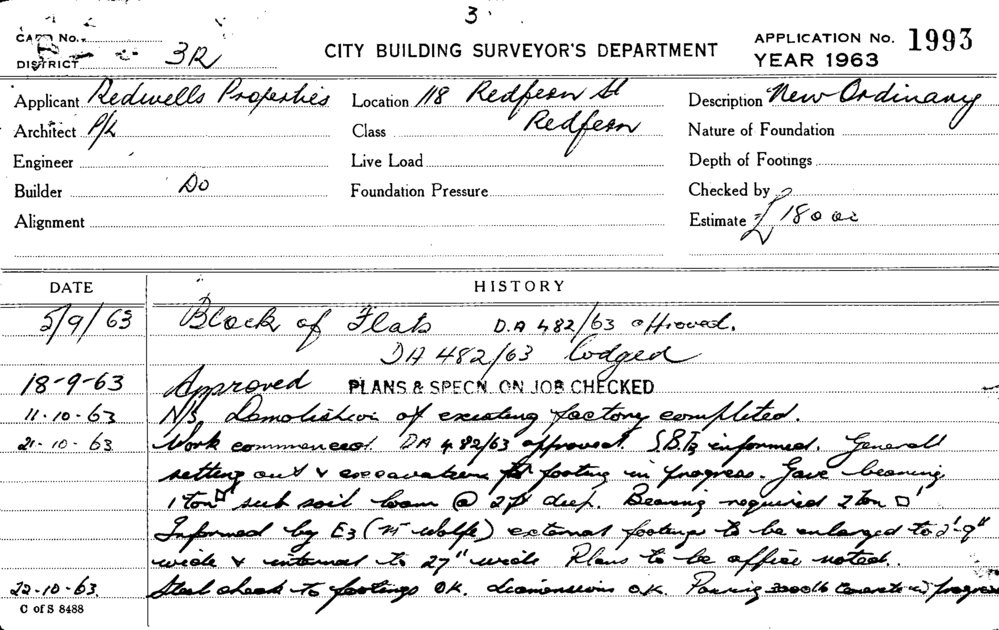 3
CARD No.
DISTRICT 3R
CITY BUILDING SURVEYOR'S DEPARTMENT
APPLICATION No. 1993
YEAR 1963
Applicant Redwells Properties Location 118 Redfern St Description New Ordinary
Architect P/L Class Redfern Nature of Foundation
Engineer Live Load Depth of Footings
Builder Do Foundation Pressure Checked by
Alignment Estimate £
DATE HISTORY
5/9/63 Block of Flats D.A 482/63 approved.
DA 482/63 lodged
18-9-63 Approved PLANS & SPECN. ON JOB CHECKED
11-10-63 N/S. Demolition of existing factory completed.
21-10-63 Work commenced. DA 482/63 approved. informed. General
setting out & excavation for footing in progress. Gave bearing
1 ton □' sub soil loam @ 2ft deep. Bearing required 2 ton □'
Informed by E3 (Mr Wolfe) external footings to be enlarged to 2'-9"
wide & internal to 27" wide Plans to be office noted.
22-10-63 Steel check to footings OK. dimensions O.K. Pouring 3000 lb Concrete in progress
C of S 8488